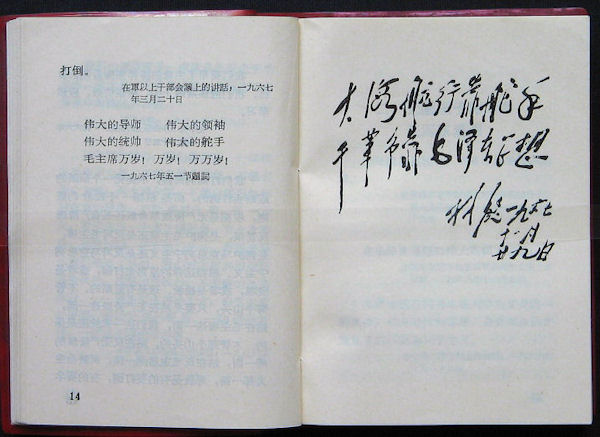 打倒。
在軍以上干部会議上的讲話：一九六七
年三月二十日
伟大的导师　伟大的领袖
伟大的统帅　伟大的舵手
毛主席万岁！万岁！万万岁！
一九六七年五一节題詞
14
大海航行靠舵手
干革命靠毛泽东思想
林彪 一九六七
十一月
廿九日